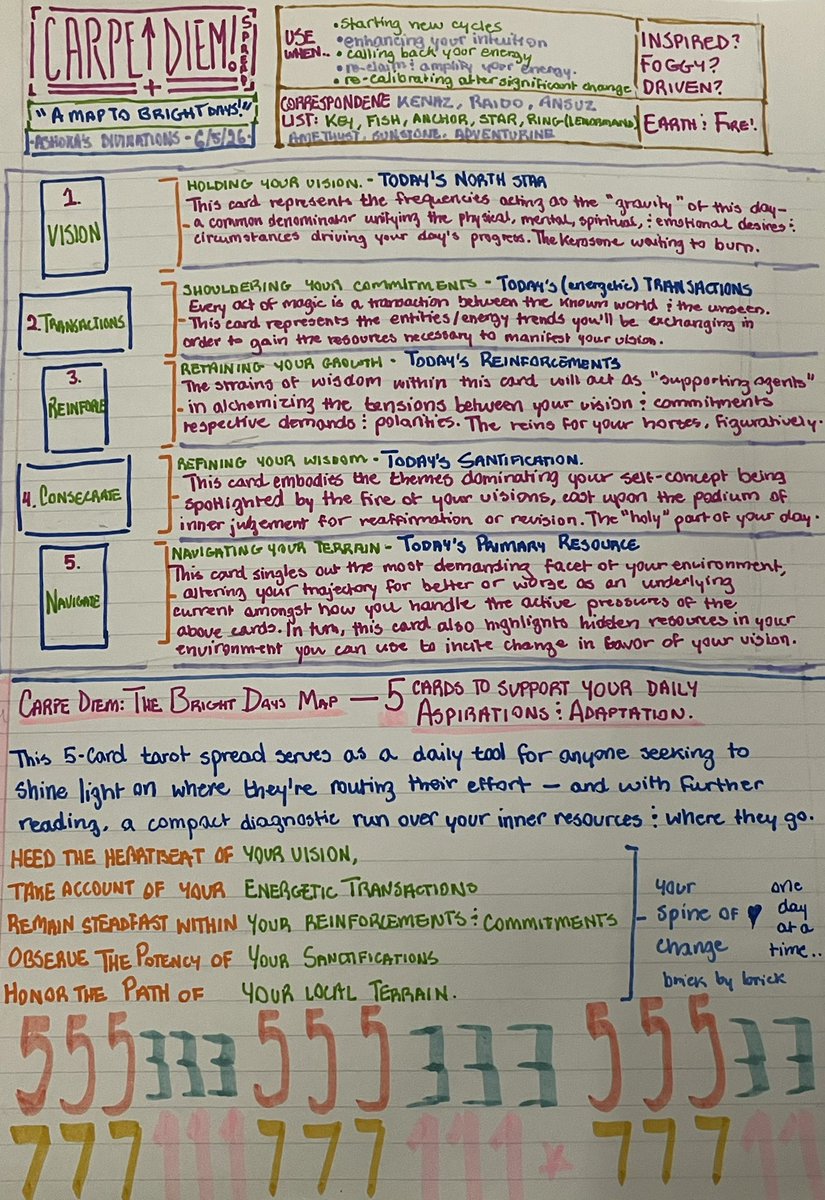 CARPE DIEM! SPREAD
+
"A MAP TO BRIGHT DAYS!"
-ASHORA'S DIVINATIONS - 6/5/26-
USE WHEN..
• starting new cycles
• enhancing your intuition
• calling back your energy
• re-claim & amplify your energy.
• re-calibrating after significant change
INSPIRED?
FOGGY?
DRIVEN?
CORRESPONDENE LIST: KENAZ, RAIDO, ANSUZ
KEY, FISH, ANCHOR, STAR, RING (LENORMAND)
AMETHYST, SUNSTONE, ADVENTURINE
EARTH & FIRE!
1. VISION
HOLDING YOUR VISION. - TODAY'S NORTH STAR
This card represents the frequencies acting as the "gravity" of this day-
a common denominator unifying the physical, mental, spiritual, & emotional desires &
circumstances driving your day's progress. The kerosene waiting to burn.
2. TRANSACTIONS
SHOULDERING YOUR COMMITMENTS - TODAY'S (energetic) TRANSACTIONS
Every act of magic is a transaction between the known world & the unseen.
This card represents the entities/energy trends you'll be exchanging in
order to gain the resources necessary to manifest your vision.
3. REINFORE
RETAINING YOUR GROWTH - TODAY'S REINFORCEMENTS
The strains of wisdom within this card will act as "supporting agents"
in alchemizing the tensions between your vision & commitments
respective demands & polarities. The reins for your horses, figuratively.
4. CONSECRATE
REFINING YOUR WISDOM - TODAY'S SANTIFICATION.
This card embodies the themes dominating your self-concept being
spotlighted by the fire of your visions, cast upon the podium of
inner judgement for reaffirmation or revision. The "holy" part of your day.
5. NAVIGATE
NAVIGATING YOUR TERRAIN - TODAY'S PRIMARY RESOURCE
This card singles out the most demanding facet of your environment,
altering your trajectory for better or worse as an underlying
current amongst how you handle the active pressures of the
above cards. In turn, this card also highlights hidden resources in your
environment you can use to incite change in favor of your vision.
CARPE DIEM: THE BRIGHT DAYS MAP — 5 CARDS TO SUPPORT YOUR DAILY
ASPIRATIONS & ADAPTATION.
This 5-Card tarot spread serves as a daily tool for anyone seeking to
shine light on where they're routing their effort — and with further
reading, a compact diagnostic run over your inner resources & where they go.
HEED THE HEARTBEAT OF YOUR VISION,
TAKE ACCOUNT OF YOUR ENERGETIC TRANSACTIONS
REMAIN STEADFAST WITHIN YOUR REINFORCEMENTS & COMMITMENTS
OBSERVE THE POTENCY OF YOUR SANCTIFICATIONS
HONOR THE PATH OF YOUR LOCAL TERRAIN.
your
spine of ♥
change
brick by brick
one
day
at a
time..
555 333 555 333 555 33
777 111 777 111 777 11